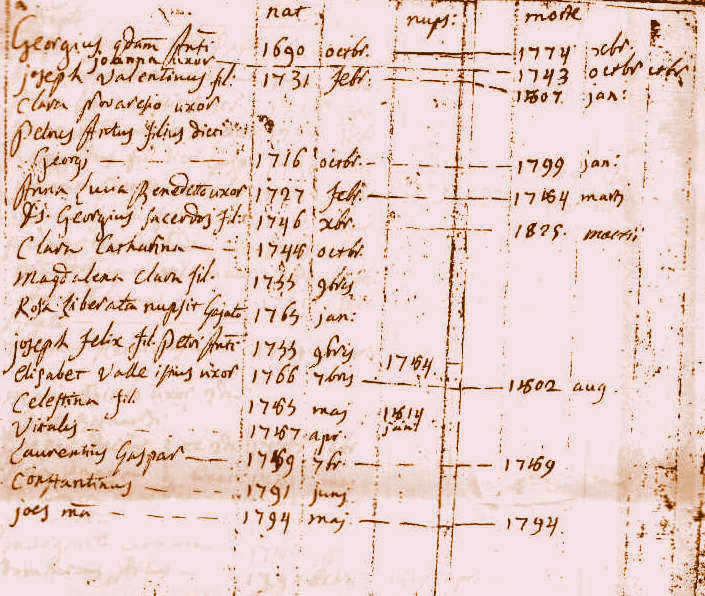 nat nups: morte
Georgius qdam Anti 1690 octbr. 1774 xbr
joanna uxor 1743 octbr
joseph Valentinus fil. 1731 febr. 1807. jan:
Clara Novaresio uxor
Petrus Antus filius dicti
Georgi 1716 octbr. 1799 jan:
Anna Lucia Benedetto uxor 1727 febr. 1784 mart
Ds. Georgius sacerdos fil: 1746 xbr. 1825. martii
Clara Catharina 1748 octbr.
Magdalena Clara fil. 1755 9bris
Rosa Liberata nupsit 1763 jan:
joseph Felix fil. Petri Anti 1755 9bris 1784
Elisabet Valle istius uxor 1766 7bris 1802 aug
Celestina fil. 1785 maj 1814
Vitalis 1787 apr.
Laurentius Gaspar 1789 7br 1789
Constantinus 1791 junj
joes ma 1794 maj 1794